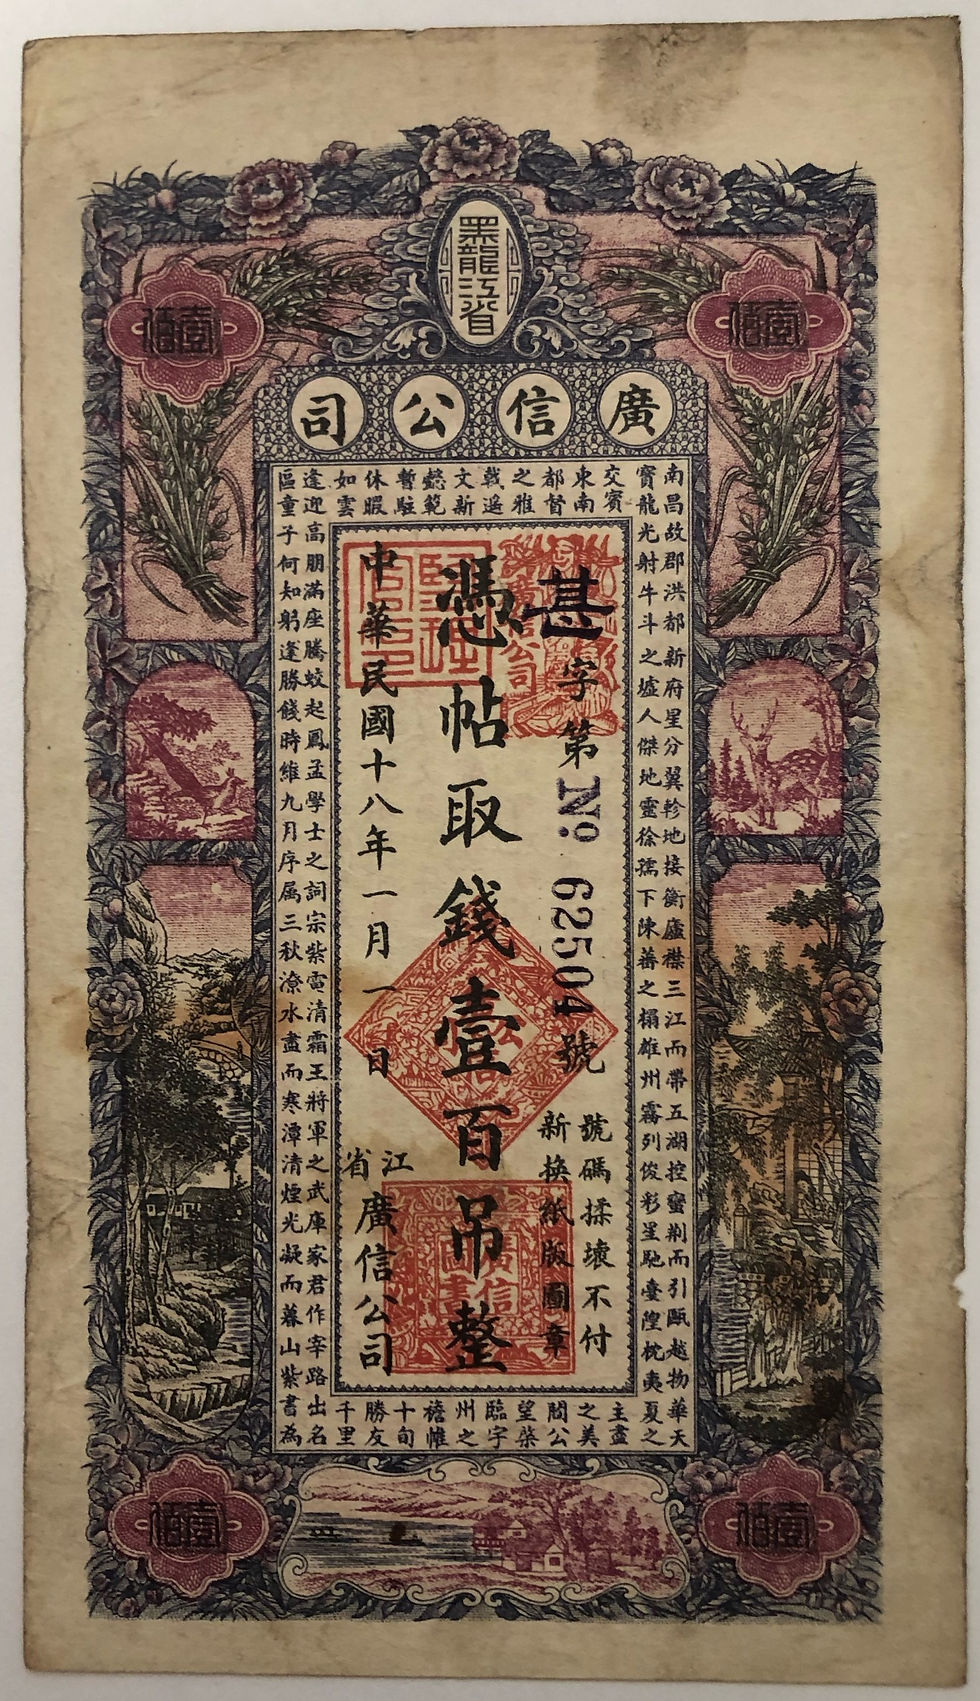 黑龍江省
壹佰
壹佰
廣信公司
南昌故郡洪都新府星分翼軫地接衡廬襟三江而帶五湖控蠻荆而引甌越物華天
寶龍光射牛斗之墟人傑地靈徐孺下陳蕃之榻雄州霧列俊彩星馳臺隍枕夷夏之
交賓主盡
東南之美
都督閻公
之雅望棨
戟遥臨宇
文新州之
懿範襜帷
暫駐十旬
休暇勝友
如雲千里
逢迎高朋滿座騰蛟起鳳孟學士之詞宗紫電清霜王將軍之武庫家君作宰路出名
區童子何知躬逢勝餞時維九月序属三秋潦水盡而寒潭清煙光凝而暮山紫書為
甚字第No 62504號
號碼揉壞不付
新換紙版圖章
憑帖取錢壹百吊整
中華民國十八年一月一日
江省廣信公司
壹佰
壹佰